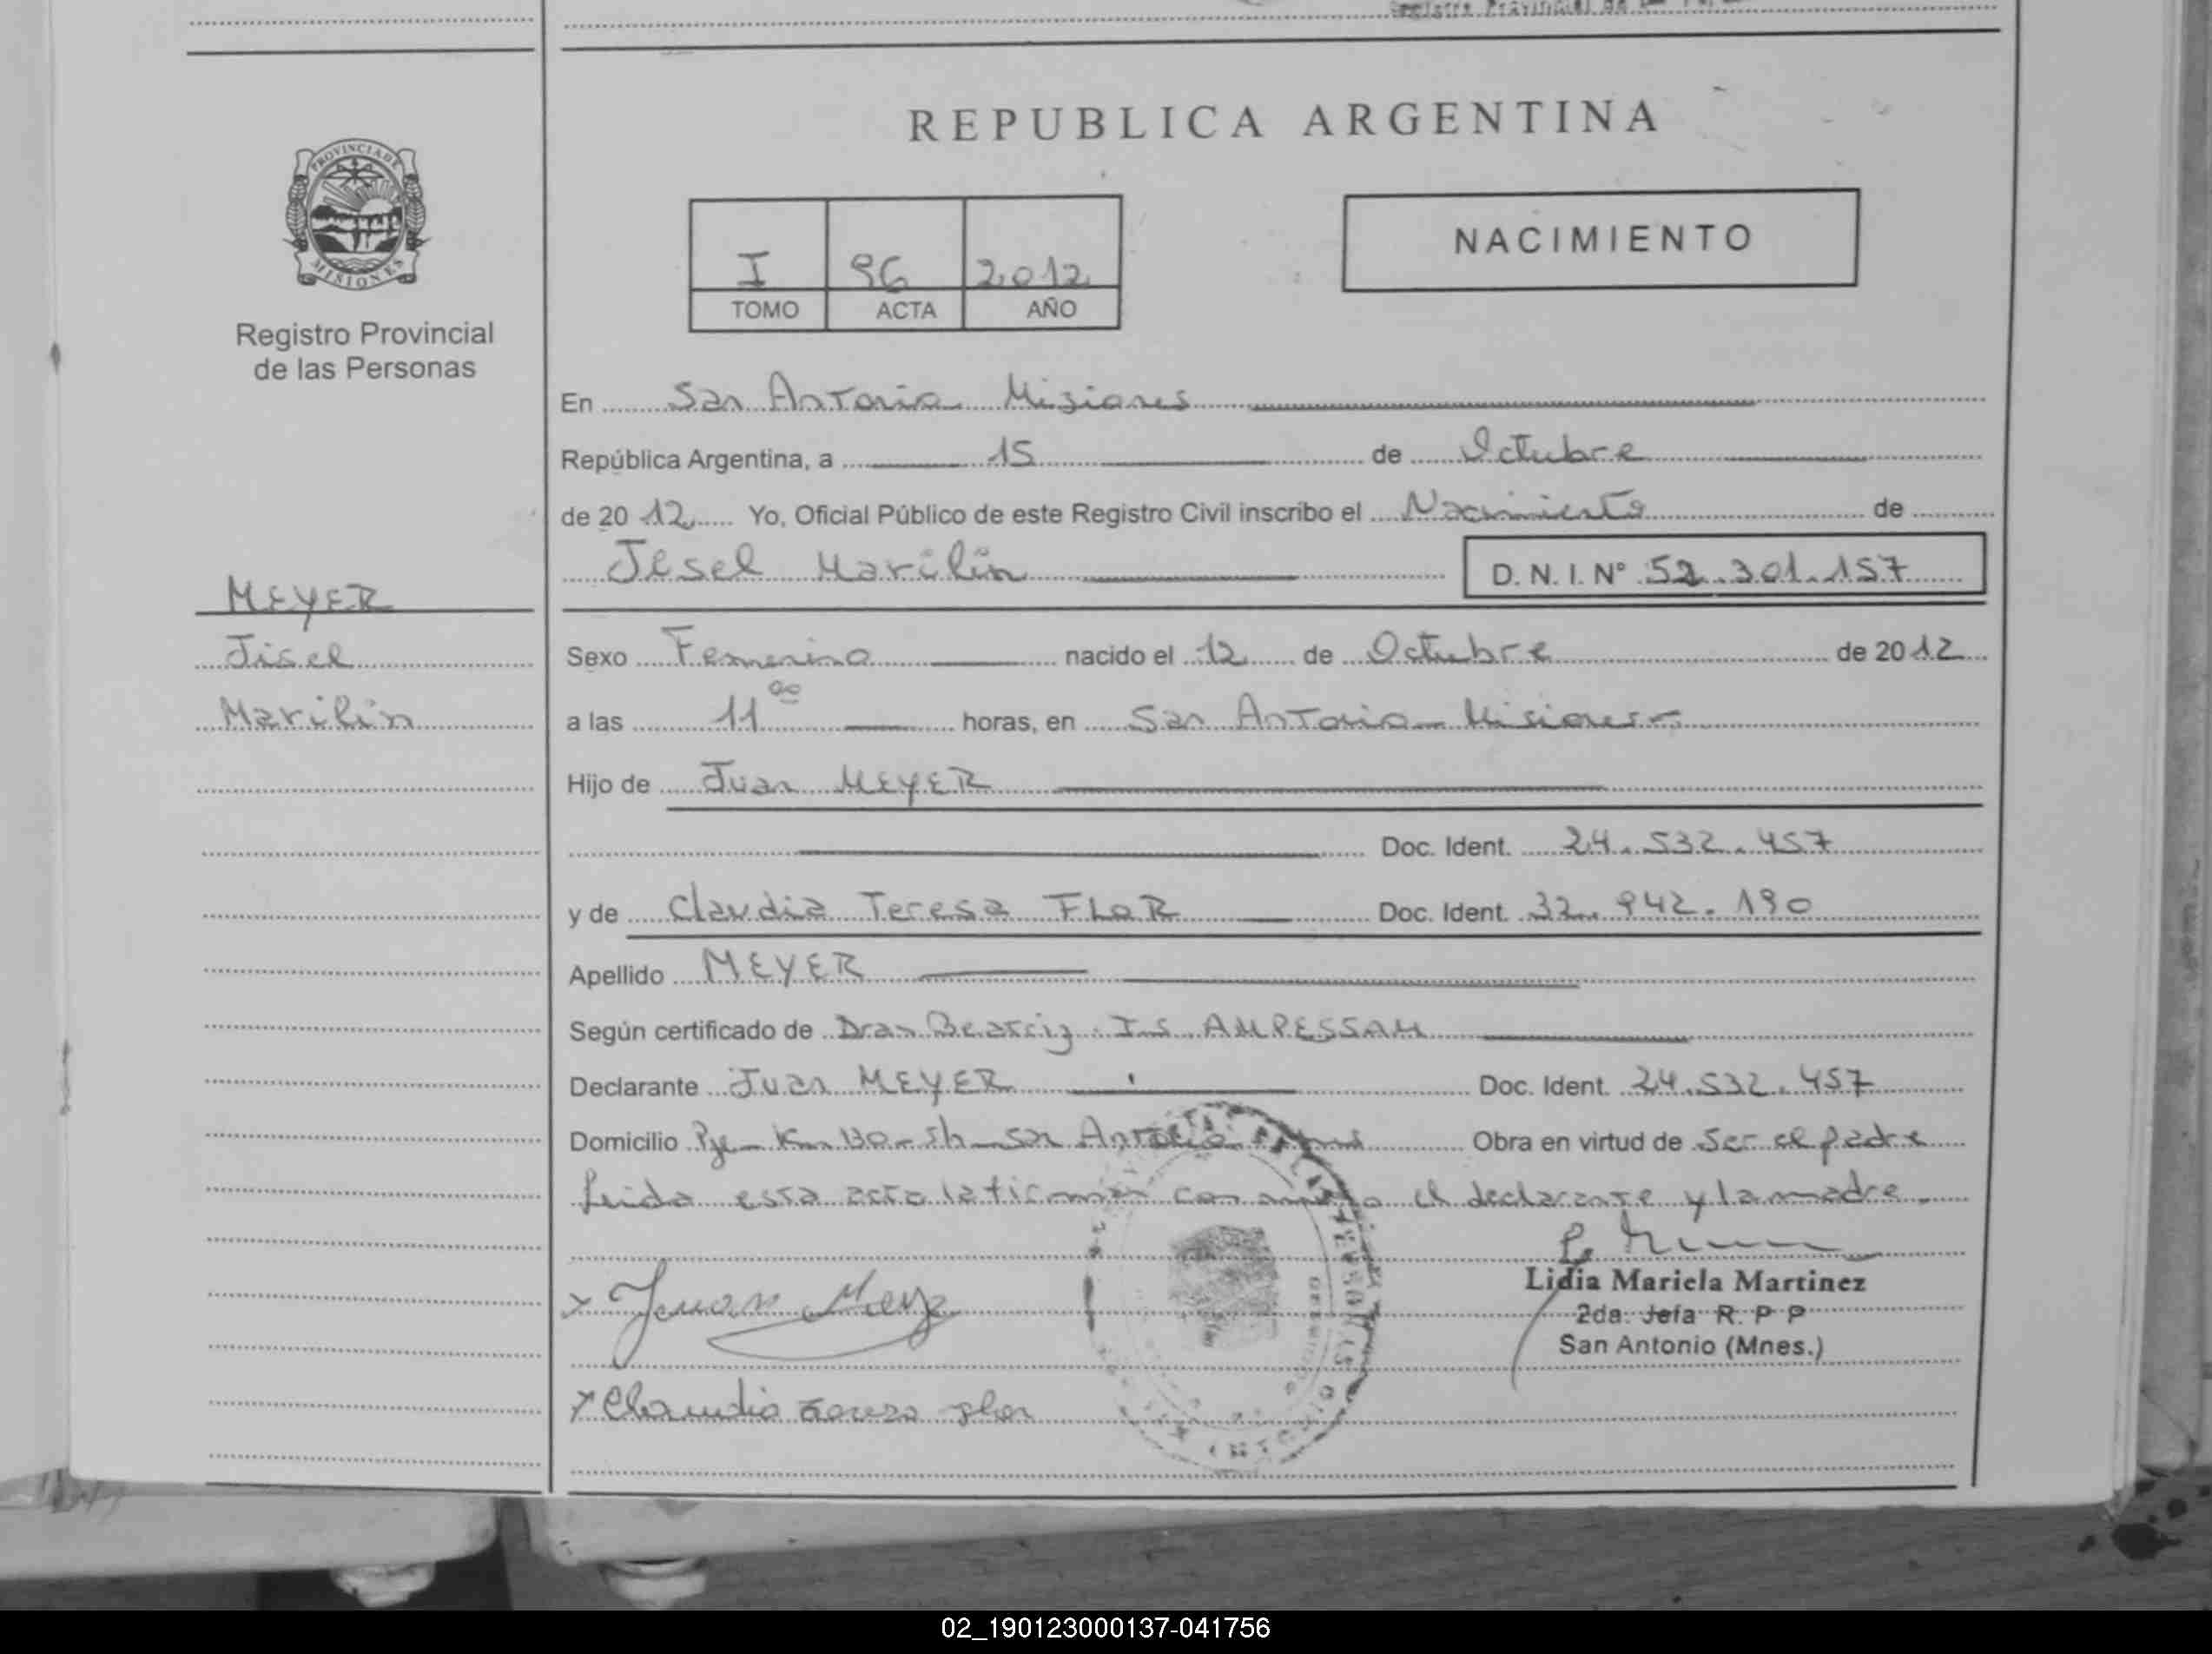 REPUBLICA ARGENTINA
PROVINCIA DE
MISIONES
Registro Provincial
de las Personas
I 96 2012
TOMO ACTA AÑO
NACIMIENTO
En San Antonio Misiones
República Argentina, a 15 de Octubre
de 2012 Yo, Oficial Público de este Registro Civil inscribo el Nacimiento de
Jesel Marilin D. N. I. Nº 52.301.157
MEYER
Jisel
Marilin
Sexo Femenino nacido el 12 de Octubre de 2012
a las 11 00 horas, en San Antonio Misiones
Hijo de Juan MEYER
Doc. Ident. 24.532.457
y de Claudia Teresa FLOR Doc. Ident. 32.942.190
Apellido MEYER
Según certificado de Dra Beatriz I.S AMPESSAM
Declarante Juan MEYER Doc. Ident. 24.532.457
Domicilio Pje Km 130 - sh - San Antonio Obra en virtud de Ser el padre
Leida esta acta la firman con el declarante y la madre
Lidia Mariela Martinez
2da. Jefa R. P P
San Antonio (Mnes.)
x Juan Meye
x Claudia Teresa flor
02_190123000137-041756